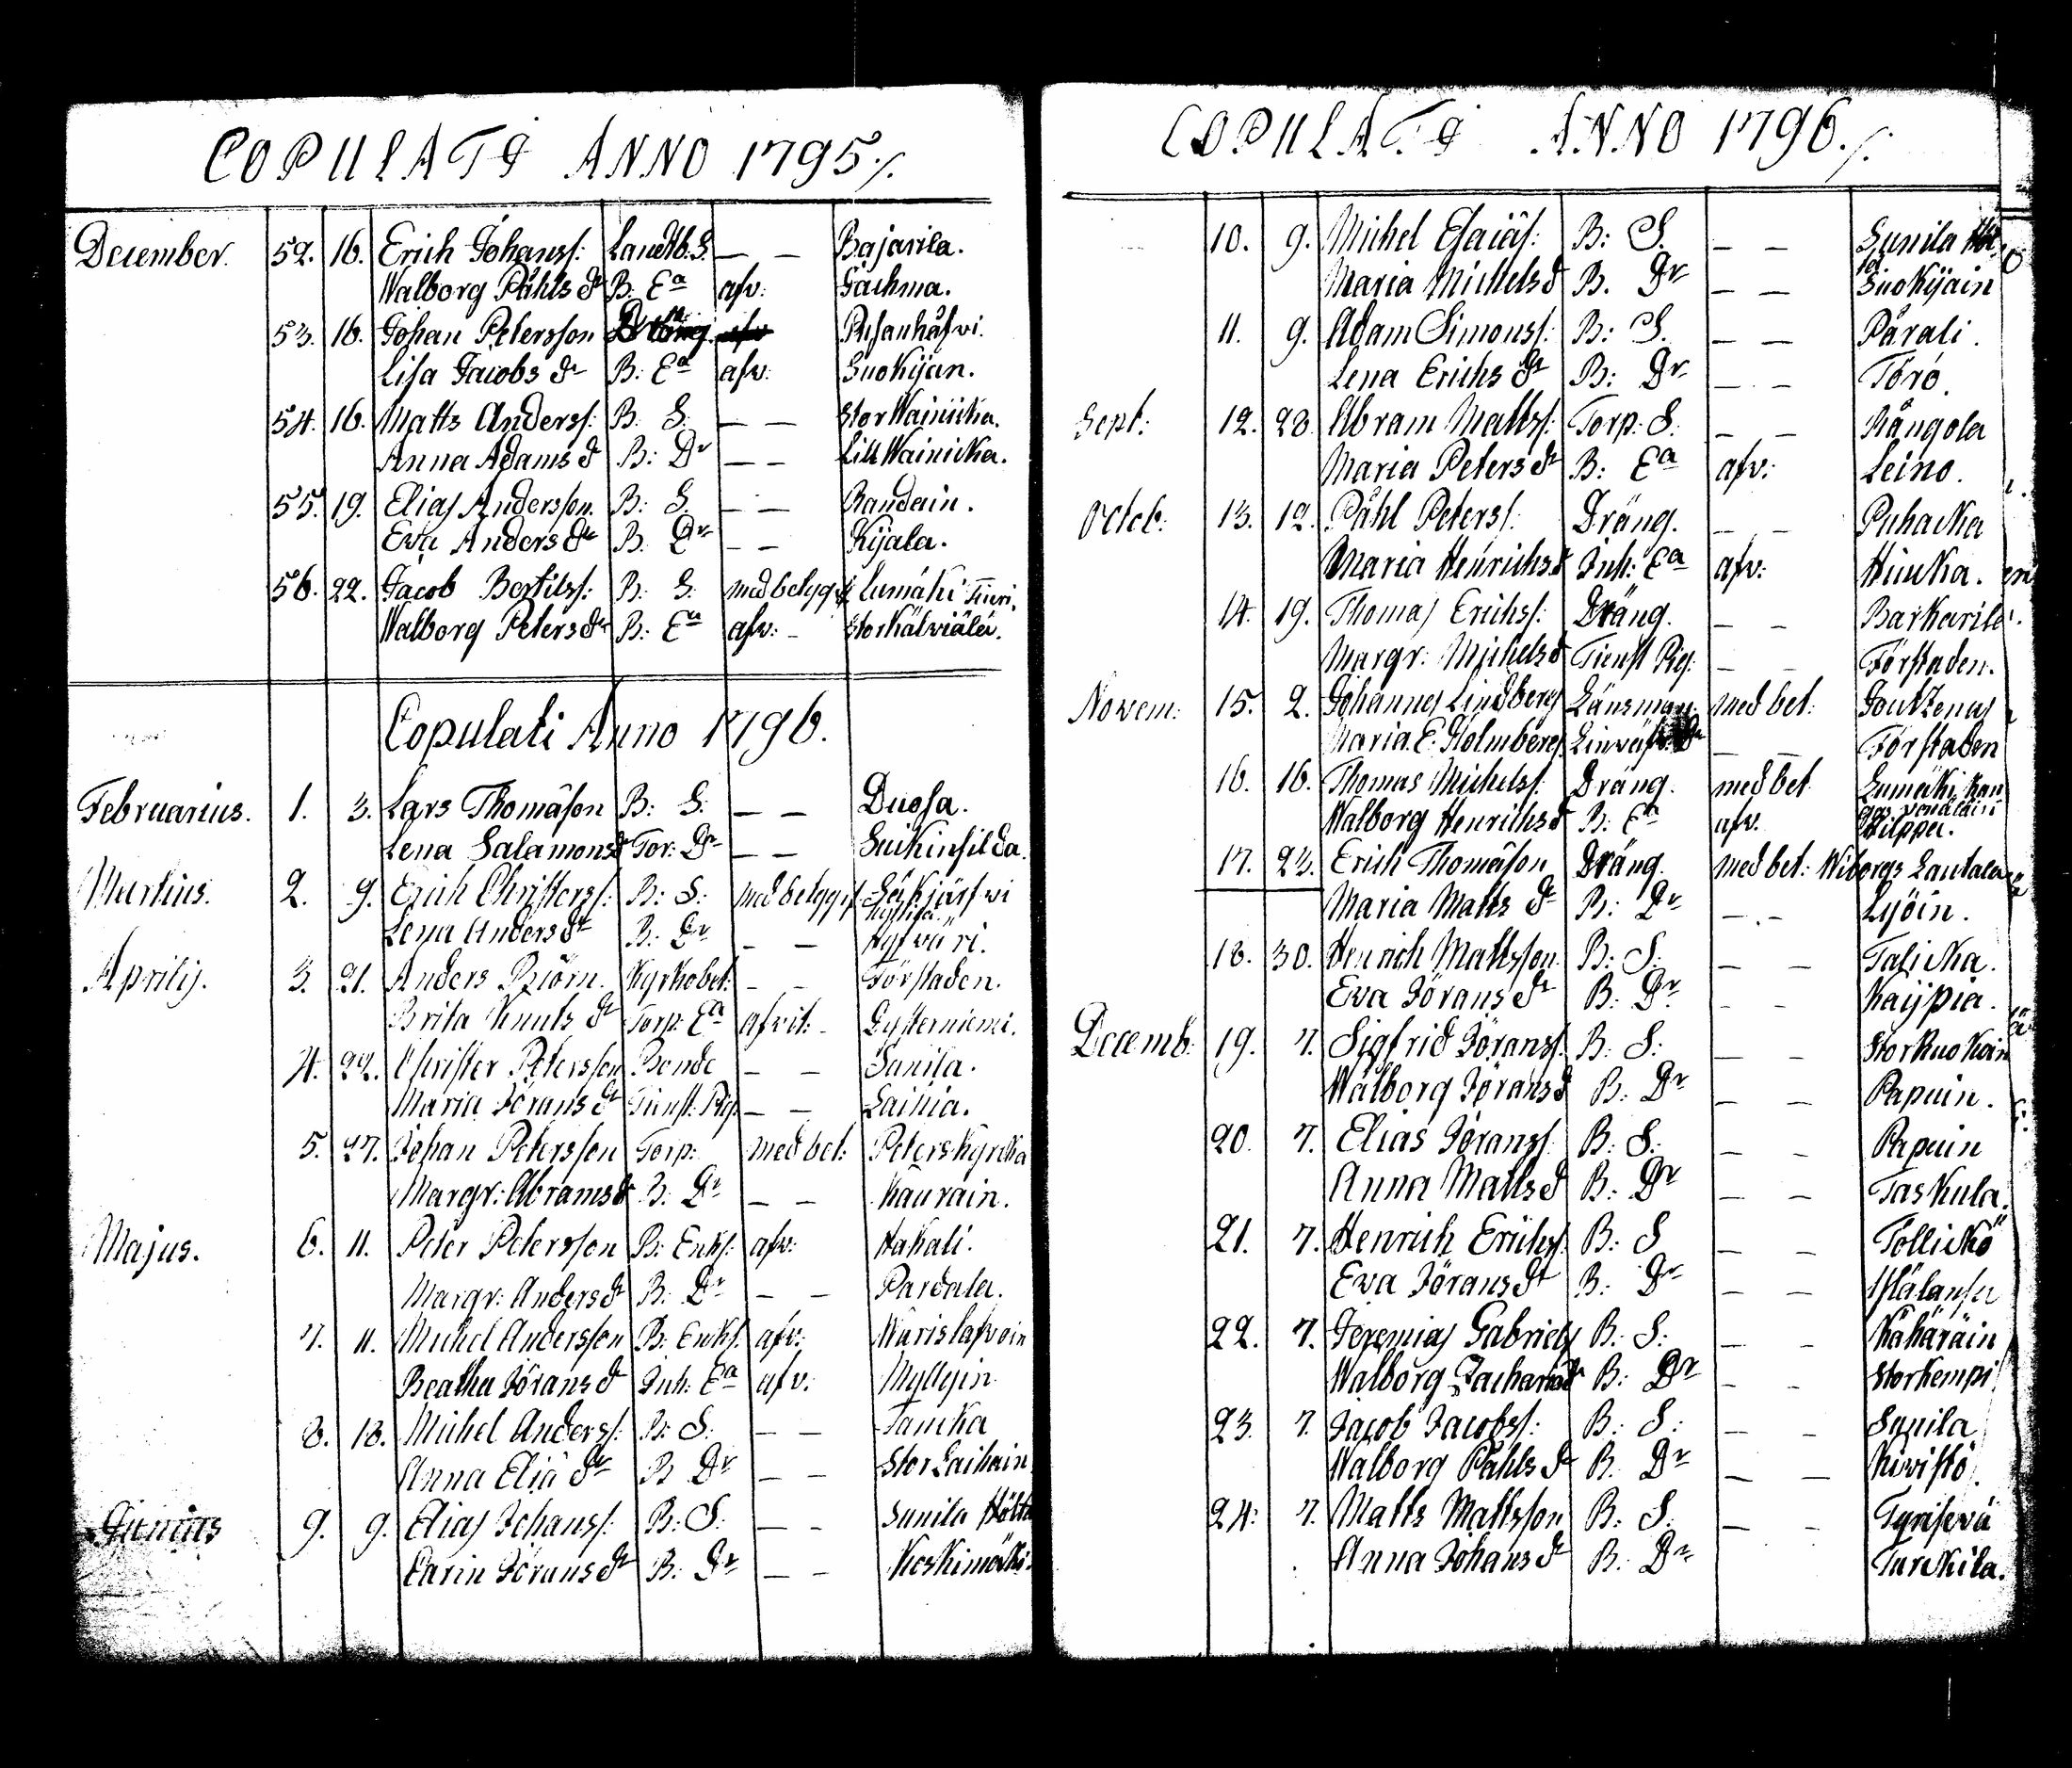 COPULATI ANNO 1795./.
December. 52. 16. Erich Johanss: Landtb. S. — — Bajarila.
Walborg Påhls dr B: Ea afv: Gachma.
53. 16. Johan Petersson Pusanhåfwi.
Lisa Jacobs dr B: Ea afv: Suokijan.
54. 16. Matts Anderss: B: S. — — Stor Wainicka.
Anna Adams d B: Dr — — Lill Wainicka.
55. 19. Elias Andersson. B: S. — — Randain.
Eva Anders dr B. Dr — — Kijala.
56. 22. Jacob Bertilss: B: S. med betyg Lumäki
Walborg Peters dr B: Ea afv: -
Copulati Anno 1796.
Februarius. 1. 3. Lars Thomåson B: S: — — Duosa.
Lena Salamons d Tor: Dr — —
Martius. 2. 9. Erich Christerss: B: S: med betyg
Lena Anders dr B: Dr — —
Aprilij. 3. 21. Anders Björn. Kyrkobet: — — Förstaden.
Brita Knuts dr Torp: Ea afvit: - Lysterniemi.
4. 22. Christer Petersson Bonde — — Sunila.
Maria Jörans dr Tienst: Pig: — — Lainia.
5. 27. Johan Petersson Torp: med bet: Peterskyrcka
Margr: Abrams d B: Dr — — Kaurain.
Majus. 6. 11. Peter Petersson B: Enkl: afv: Hakali.
Margr: Anders dr B: Dr — — Pardala.
7. 11. Michel Andersson B: Enkl: afv:
Beatha Jörans d Inh: Ea afv: Myllyin
8. 18. Michel Anderss: B: S: — —
Anna Eliä dr B Dr — — Stor Laihain
Junius 9. 9. Elias Johanss: B: S: — — Sunila
Carin Jörans dr B: Dr — — Koskimäki.
COPULATI ANNO 1796./.
10. 9. Michel Esaiäs: B: S. — — Sunila
Maria Michels d B. Dr — — Suokijain
11. 9. Adam Simonss: B: S. — — Pärali.
Lena Erichs dr B: Dr — — Törö.
Sept: 12. 28. Abram Mattss: Torp: S: — — Rångola
Maria Peters dr B: Ea afv: Leino.
Octob: 13. 12. Påhl Peterss: Dräng. — — Puhacka
Maria Henrichs d Inh: Ea afv:
14. 19. Thomas Erichss: Dräng. — — Barkarila.
Margr: Michels d Tienst Pig: — — Förstaden.
Novem: 15. 2. Johannes Lindberg Länsman. med bet: Joutzenas
Maria. E. Holmberg — — Förstaden
16. 16. Thomas Michelss: Dräng. med bet Lumäki
Walborg Henrichs d B: Ea afv. Hilppa.
17. 23. Erich Thomåson Dräng. med bet: Wiborgs Lautala
Maria Matts dr B: Dr — — Lyöin.
18. 30. Henrich Mattsson B: S: — — Talicka.
Eva Jörans dr B: Dr — — Kaijpia.
Decemb: 19. 7. Sigfrid Jöranss: B: S: — —
Walborg Jörans d B: Dr — — Papuin.
20. 7. Elias Jöranss: B: S: — — Papuin
Anna Matts d B: Dr — — Taskula.
21. 7. Henrich Erichss: B: S — — Töllickö
Eva Jörans dr B: Dr — —
22. 7. Jeremias Gabriels B: S: — — Kähäräin
Walborg B: Dr — — Storkempi
23. 7. Jacob Jacobss: B: S: — — Sunila
Walborg Påhls dr B: Dr — — Kivistö.
24: 7. Matts Mattsson B: S: — —
Anna Johans dr B: Dr Turckila.